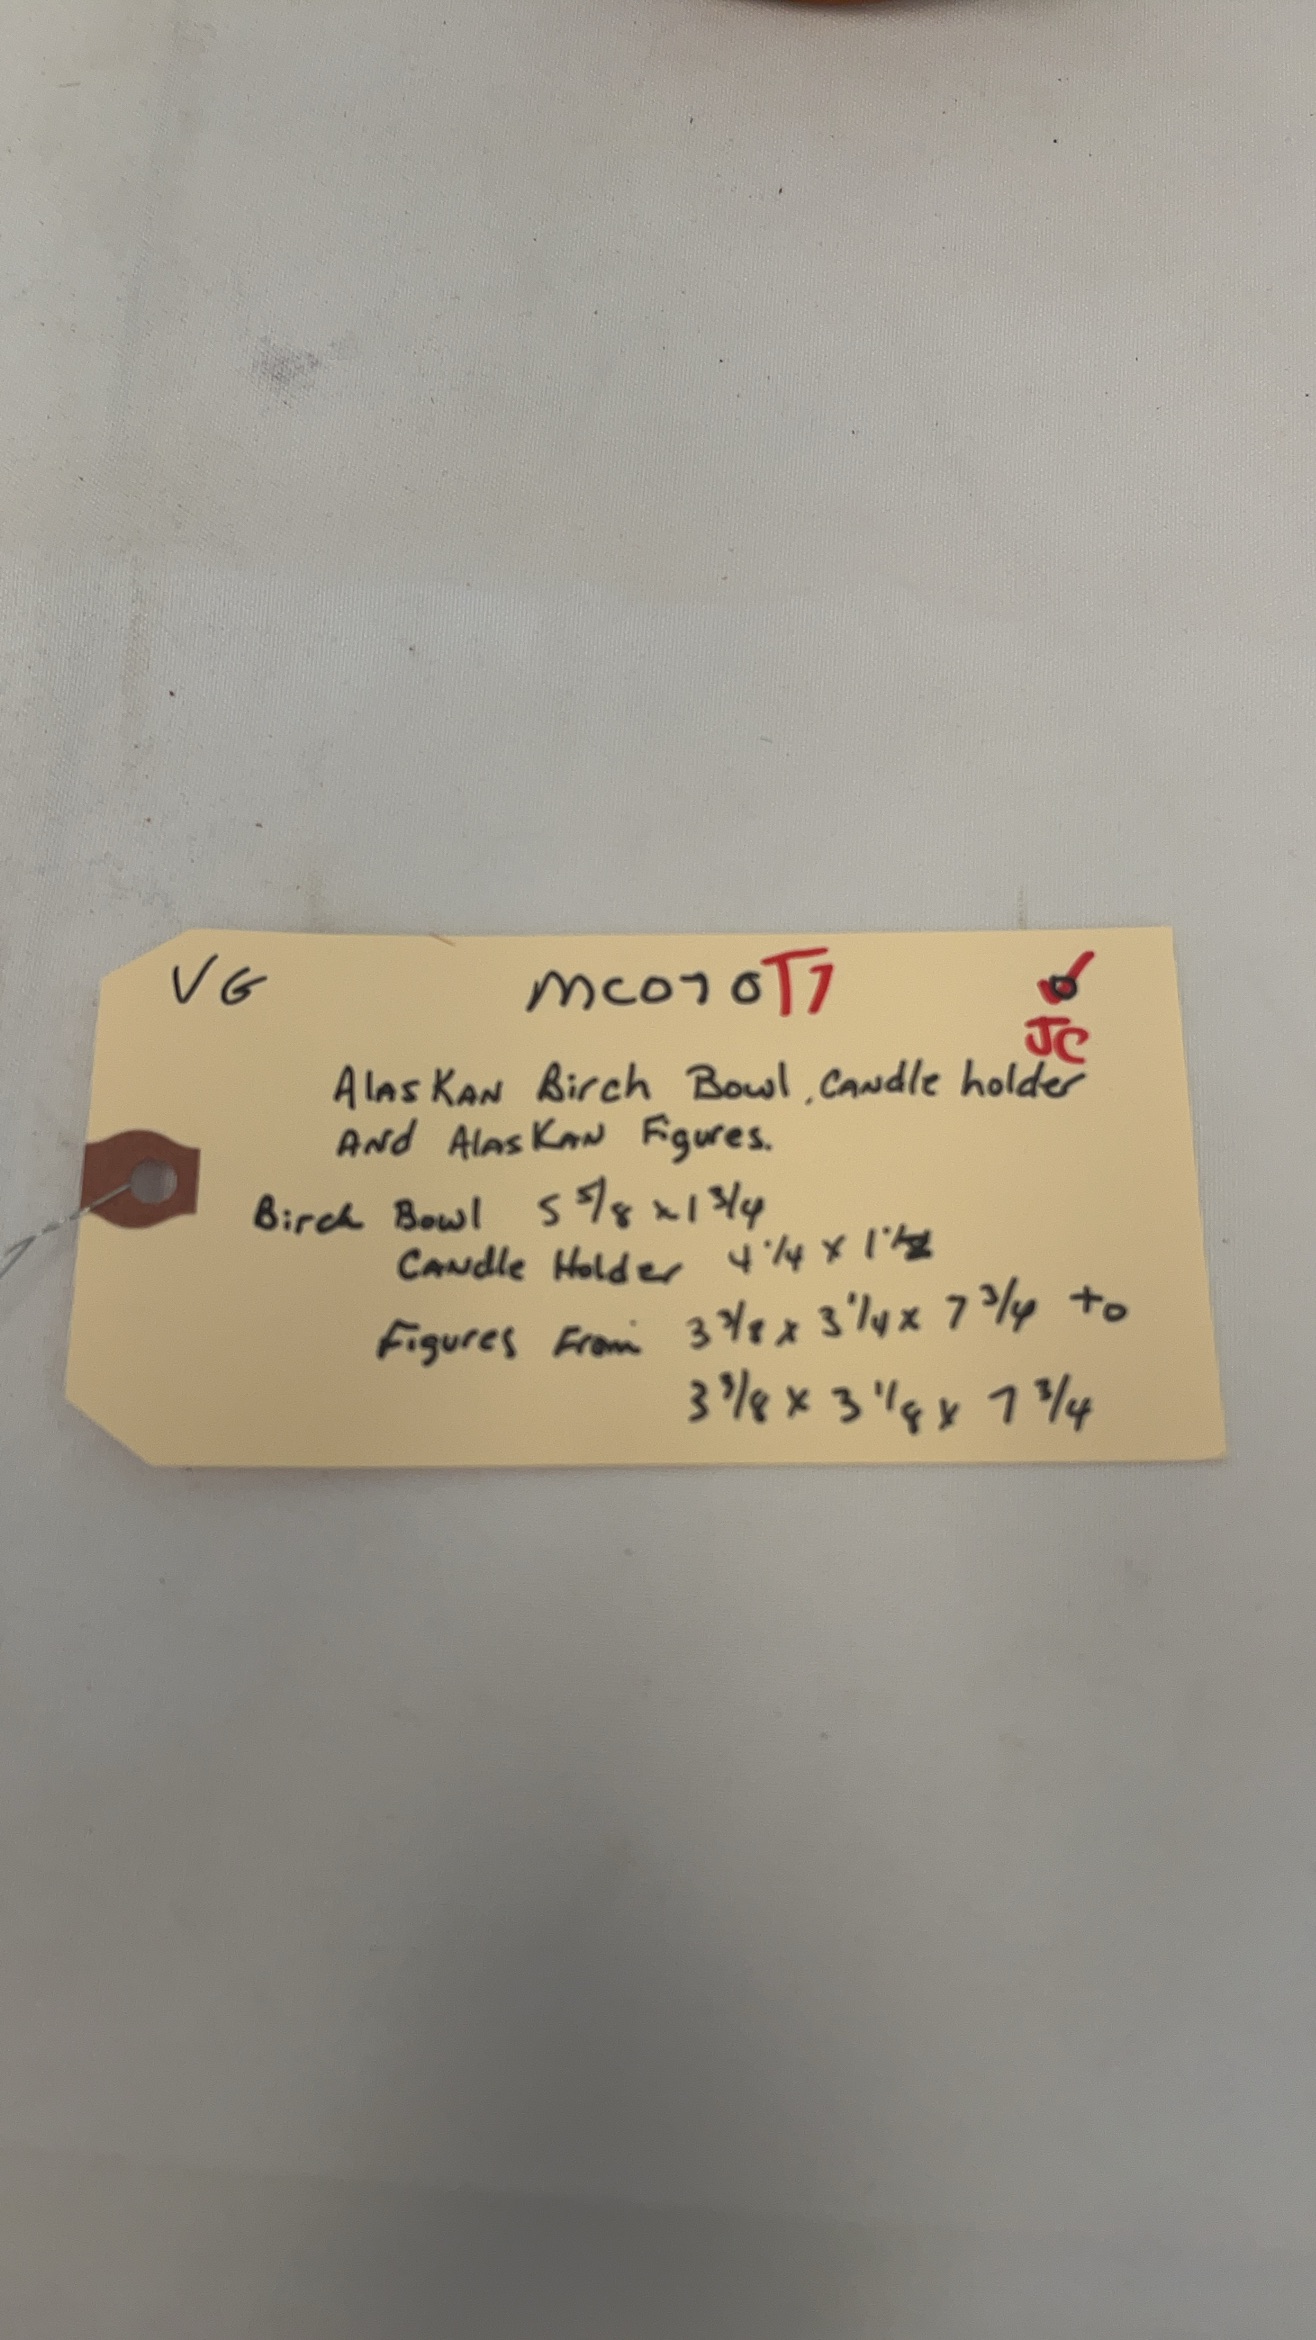 VG MC070T7
JC
AlasKAN Birch Bowl, CANdle holder
ANd AlasKAN Figures.
Birch Bowl 5 5/8 x 1 3/4
CANdle Holder 4 1/4 x 1 1/2
Figures From 3 3/8 x 3 1/4 x 7 3/4 to
3 3/8 x 3 1/8 x 7 3/4